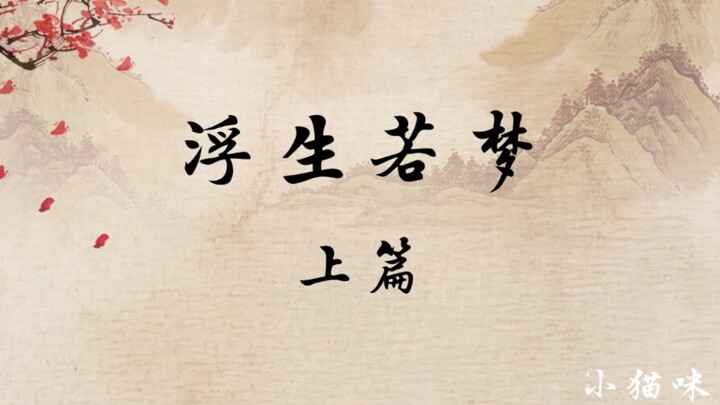 浮生若梦
上篇
小猫咪